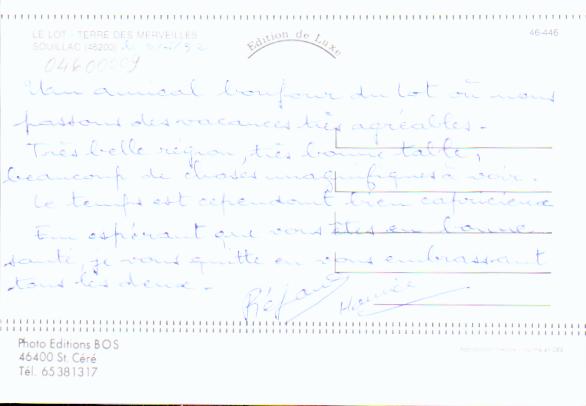 LE LOT - TERRE DES MERVEILLES
SOUILLAC (46200)
Edition de Luxe
46-446
Un amical bonjour du Lot où nous
passons des vacances très agréables.
Très belle région, très bonne table,
beaucoup de choses magnifiques à voir.
Le temps est cependant bien capricieux
En espérant que vous êtes en bonne
santé, je vous quitte en vous embrassant
tous les deux.
Photo Editions BOS
46400 St. Céré
Tél. 65381317